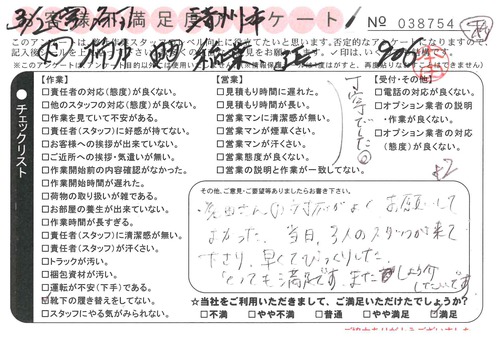 お客様満足度アンケート
№ 038754
このアンケートは
立てたいと思います。否定的なアンケートになりますので
チェックリスト
【作業】
□責任者の対応(態度)が良くない。
□他のスタッフの対応(態度)が良くない。
□作業を見ていて不安がある。
□責任者(スタッフ)に好感が持てない。
□お客様への挨拶が出来ていない。
□ご近所への挨拶・気遣いが無い。
□作業開始前の内容確認がなかった。
□作業開始時間が遅れた。
□荷物の取り扱いが雑である。
□お部屋の養生が出来ていない。
□作業時間が長すぎる。
□責任者(スタッフ)に清潔感が無い。
□責任者(スタッフ)が汗くさい。
□トラックが汚い。
□梱包資材が汚い。
□運転が不安(下手)である。
☑靴下の履き替えをしてない。
□スタッフにやる気がみられない。
【営業】
□見積もり時間に遅れた。
□見積もり時間が長い。
□営業マンに清潔感が無い。
□営業マンが煙草くさい。
□営業マンが汗くさい。
□営業態度が良くない。
□営業の説明と作業が一致してない。
丁寧でした
【受付・その他】
□電話の対応が良くない。
□オプション業者の説明
・作業が良くない。
□オプション業者の対応
(態度)が良くない。
その他、ご意見・ご要望等ありましたらお書き下さい。
さんの対応がよく お願いして
よかった。当日、3人のスタッフが来て
下さり、早くてびっくりした。
とっても満足です。また しょう介
したいです。
☆当社をご利用いただきまして、ご満足いただけたでしょうか?
□不満 □やや不満 □普通 □やや満足 ☑満足
ご協力ありがとうございました